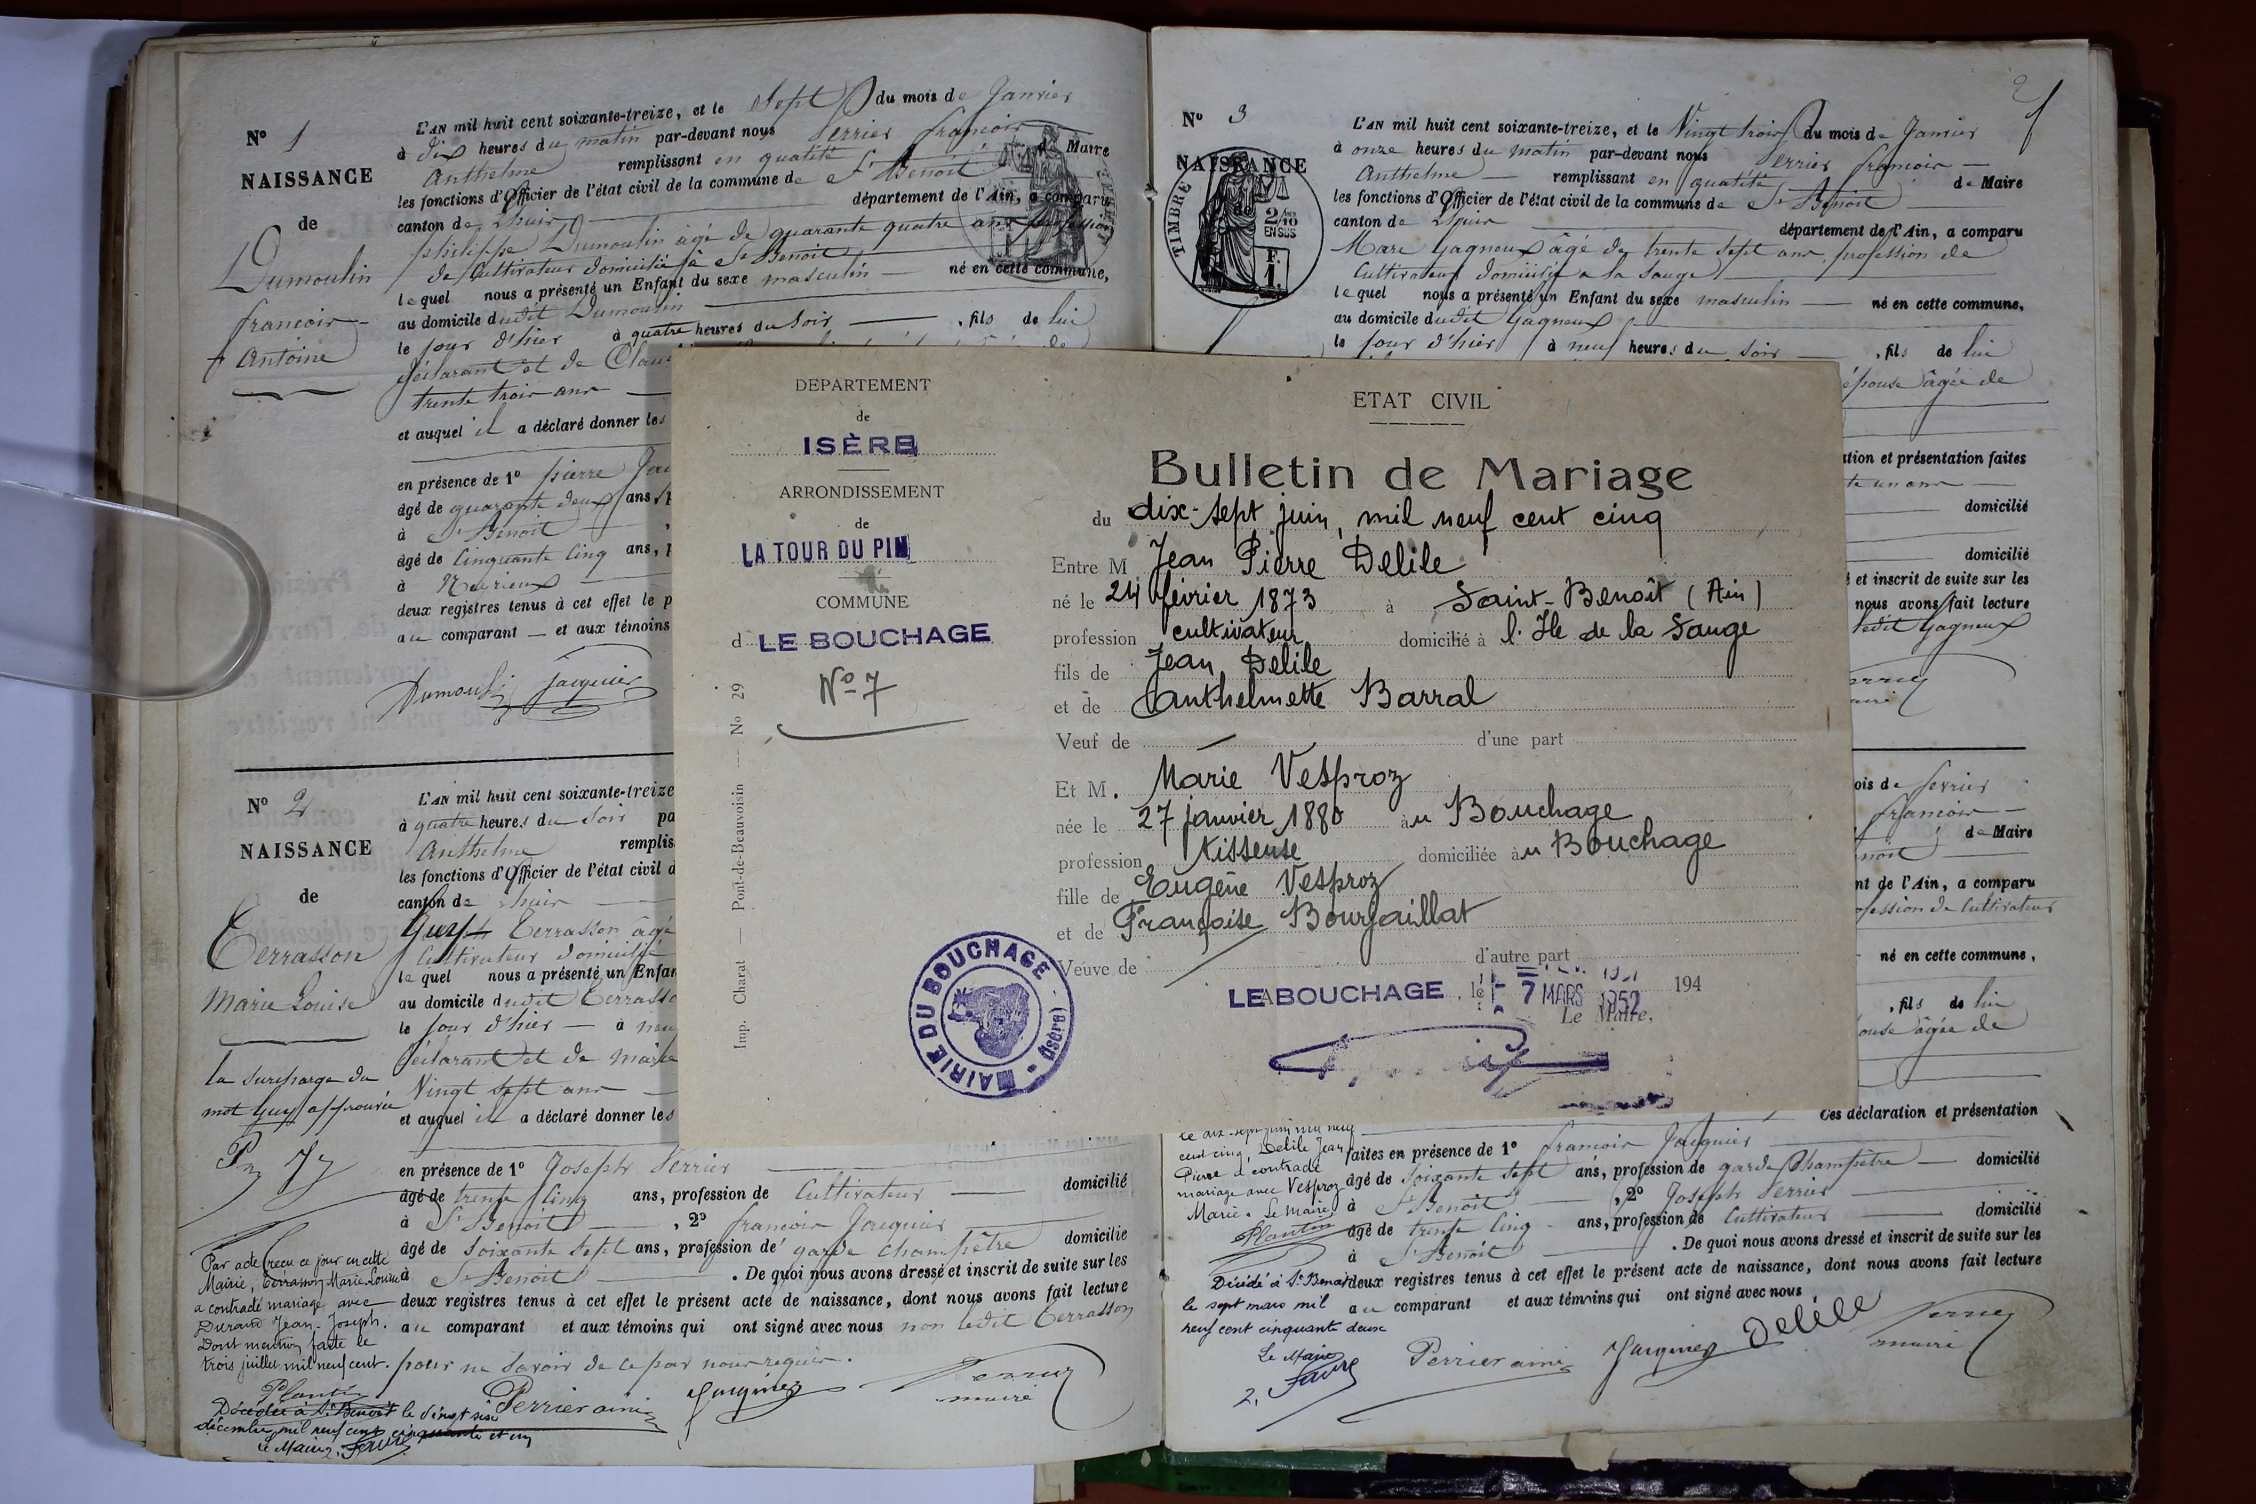 Nº 1
NAISSANCE
de
Dumoulin
françois
Antoine
L'AN mil huit cent soixante-treize, et le Sept du mois de Janvier
à dix heures du matin par-devant nous Perrier françois
Anthelme remplissant en qualité de Maire
les fonctions d'Officier de l'état civil de la commune de St Benoit
canton de Lhuis département de l'Ain, a comparu
philippe Dumoulin âgé de quarante quatre ans profession
de Cultivateur domicilié à St Benoit
lequel nous a présenté un Enfant du sexe masculin né en cette commune,
au domicile dudit Dumoulin
le jour d'hier à quatre heures du soir, fils de lui
déclarant et de
trente trois ans
et auquel il a déclaré donner les
en présence de 1º pierre
âgé de quarante deux ans,
à St Benoit
âgé de Cinquante Cinq ans,
à
deux registres tenus à cet effet le p
au comparant et aux témoins
Dumoulin Jacquier
Nº 2
NAISSANCE
de
Terrasson
Marie Louise
la surcharge du
mot Guy approuvée
L'AN mil huit cent soixante-treize
à quatre heures du Soir pa
Anthelme remplis
les fonctions d'Officier de l'état civil d
canton de Lhuis
Terrasson âgé
Cultivateur domicilié
lequel nous a présenté un Enfan
au domicile dudit Terrasso
le jour d'hier à neu
déclarant et de marie
Vingt sept ans
et auquel il a déclaré donner les
en présence de 1º Joseph Perrier
âgé de trente Cinq ans, profession de Cultivateur domicilié
à St Benoit, 2º françois Jacquier
âgé de soixante sept ans, profession de garde champêtre domicilié
à St Benoit. De quoi nous avons dressé et inscrit de suite sur les
deux registres tenus à cet effet le présent acte de naissance, dont nous avons fait lecture
au comparant et aux témoins qui ont signé avec nous non ledit Terrasson
pour ne savoir de ce par nous requis.
Perrier ainé Jacquier Perrier
maire
Par acte reçu ce jour en cette
Mairie, Terrasson Marie-Louise
a contracté mariage avec
Durand Jean-Joseph.
Dont mention faite le
trois juillet mil neuf cent.
Décédée à St Benoit le vingt six
décembre mil neuf cent cinquante et un
Le Maire, Faure
DEPARTEMENT
de
ISÈRE
ARRONDISSEMENT
de
LA TOUR DU PIN
COMMUNE
d LE BOUCHAGE
Nº 7
Imp. Charat — Pont-de-Beauvoisin — Nº 29
ETAT CIVIL
Bulletin de Mariage
du dix-sept juin, mil neuf cent cinq
Entre M Jean Pierre Delile
né le 24 février 1873 à Saint-Benoît (Ain)
profession cultivateur domicilié à l'Ile de la Sauge
fils de Jean Delile
et de Anthelmette Barral
Veuf de — d'une part
Et M. Marie Vesproz
née le 27 janvier 1880 au Bouchage
profession tisseuse domiciliée au Bouchage
fille de Eugène Vesproz
et de Françoise Bourjaillat
Veuve de d'autre part
LE BOUCHAGE, le 7 MARS 1952 194
Le Maire,
MAIRIE DU BOUCHAGE (Isère)
2
Nº 3
NAISSANCE
de
TIMBRE
2/10
EN SUS
F.
1.
L'AN mil huit cent soixante-treize, et le Vingt trois du mois de Janvier
à onze heures du matin par-devant nous Perrier françois
Anthelme remplissant en qualité de Maire
les fonctions d'Officier de l'état civil de la commune de St Benoit
canton de Lhuis département de l'Ain, a comparu
Marc Gagneux âgé de trente sept ans, profession de
Cultivateur domicilié a la Sauge
lequel nous a présenté un Enfant du sexe masculin né en cette commune,
au domicile dudit Gagneux
le jour d'hier à neuf heures du Soir, fils de lui
épouse âgée de
ation et présentation faites
domicilié
domicilié
et inscrit de suite sur les
nous avons fait lecture
ledit Gagneux
ois de fevrier
françois
de Maire
enoit
nt de l'Ain, a comparu
ofession de Cultivateur
né en cette commune,
, fils de lui
ouse âgée de
Ces déclaration et présentation
faites en présence de 1º françois Jacquier
âgé de soixante sept ans, profession de garde champêtre domicilié
à St Benoit, 2º Joseph Perrier
âgé de trente Cinq ans, profession de Cultivateur domicilié
à St Benoit. De quoi nous avons dressé et inscrit de suite sur les
deux registres tenus à cet effet le présent acte de naissance, dont nous avons fait lecture
au comparant et aux témoins qui ont signé avec nous
Perrier ainé Jacquier Delile Perrier
maire
le dix-sept juin mil neuf
cent cinq, Delile Jean
Pierre a contracté
mariage avec Vesproz
Marie. Le Maire
Décédé à St Benoit
le sept mars mil
neuf cent cinquante deux
Le Maire
Faure